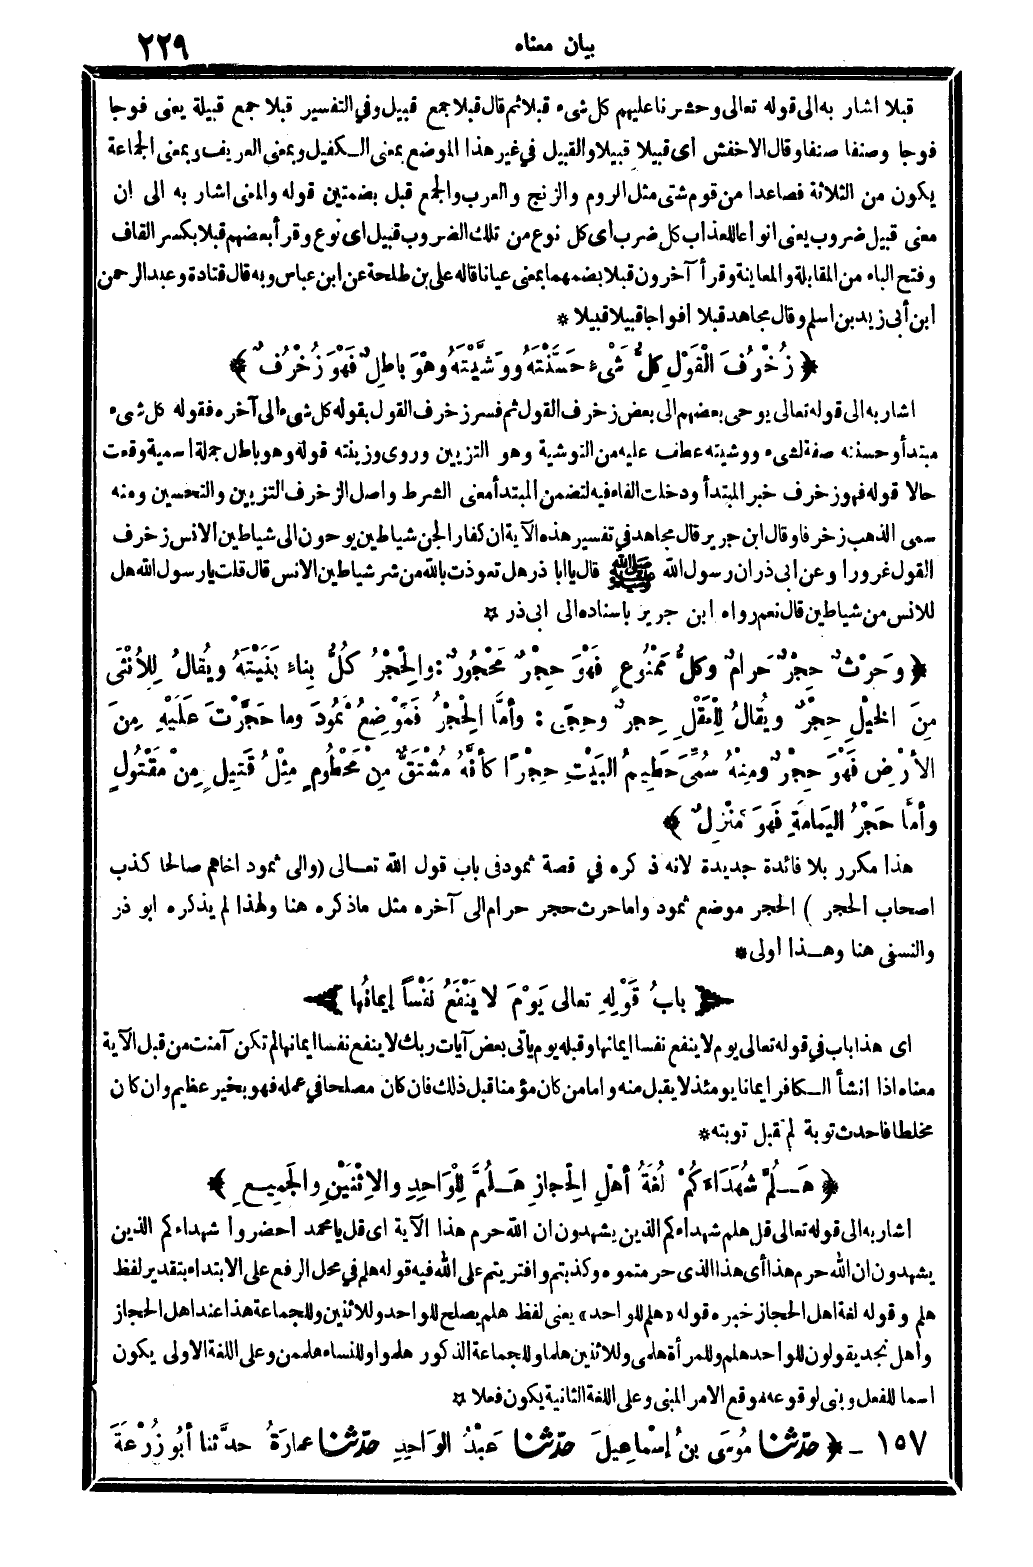 بيان معناه ٢٢٩
قبلا اشار به الى قوله تعالى وحشرنا عليهم كل شىء قبلا ثم قال قبلا جمع قبيل وفي التفسير قبلا جمع قبيلة يعنى فوجا
فوجا وصنفا صنفا وقال الاخفش أى قبيلا قبيلا والقبيل في غير هذا الموضع بمعنى الكفيل وبمعنى العريف وبمعنى الجماعة
يكون من الثلاثة فصاعدا من قوم شتى مثل الروم والزنج والعرب والجمع قبل بضمتين قوله والمعنى اشار به الى ان
معنى قبيل ضروب يعنى انواعا للعذاب كل ضرب أى كل نوع من تلك الضروب قبيل اى نوع وقرأ بعضهم قبلا بكسر القاف
وفتح الباء من المقابلة والمعاينة وقرأ آخرون قبلا بضمهما بمعنى عيانا قاله على بن طلحة عن ابن عباس وبه قال قتادة وعبد الرحمن
ابن أبى زيد بن اسلم وقال مجاهد قبلا أفواجا قبيلا قبيلا *
﴿ زُخْرُفَ الْقَوْلِ كلُّ شَىْءٍ حَسَّنْتَهُ ووَشَّيْتَهُ وهْوَ باطِلٌ فَهْوَ زُخْرُفٌ ﴾
اشار به الى قوله تعالى يوحى بعضهم الى بعض زخرف القول ثم فسر زخرف القول بقوله كل شىء الى آخره فقوله كل شىء
مبتدأ وحسنته صفة لشىء ووشيته عطف عليه من التوشية وهو التزيين وروى وزينته قوله وهو باطل جملة أسمية وقعت
حالا قوله فهو زخرف خبر المبتدأ ودخلت الفاء فيه لتضمن المبتدأ معنى الشرط واصل الزخرف التزيين والتحسين ومنه
سمى الذهب زخرفا وقال ابن جرير قال مجاهد في تفسير هذه الآية ان كفار الجن شياطين يوحون الى شياطين الانس زخرف
القول غرورا وعن ابى ذر ان رسول الله ﷺ قال يا ابا ذر هل تعوذت بالله من شر شياطين الانس قال قلت يا رسول الله هل
للانس من شياطين قال نعم رواه ابن جرير باسناده الى ابى ذر *
﴿ وحَرْثٌ حِجْرٌ حَرامٌ وكلُّ مَمْنُوعٍ فَهْوَ حِجْرٌ مَحْجُورٌ : والحِجْرُ كُلُّ بِناءٍ بَنَيْتَهُ ويُقالُ لِلْأُنْثَى
مِنَ الخَيْلِ حِجْرٌ ويُقالُ لِلْعَقْلِ حِجرٌ وحِجًى : وأمَّا الحِجْرُ فَمَوْضِعُ ثَمُودَ وما حَجَّرْتَ عَلَيْهِ مِنَ
الأرْضِ فَهْوَ حِجْرٌ ومِنْهُ سُمِّىَ حَطِيمُ البَيْتِ حِجْرًا كأنَّهُ مُشْتَقٌّ مِنْ مَحْطُومٍ مِثْلُ قَتِيلٍ مِنْ مَقْتُولٍ
وأمَّا حَجْرُ اليَمامَةِ فَهْوَ مَنْزِلٌ ﴾
هذا مكرر بلا فائدة جديدة لانه ذكره في قصة ثمود فى باب قول الله تعالى (والى ثمود اخاهم صالحا كذب
اصحاب الحجر) الحجر موضع ثمود واما حرث حجر حرام الى آخره مثل ماذكره هنا ولهذا لم يذكره ابو ذر
والنسفى هنا وهذا أولى *
بابُ قَوْلِهِ تعالى يَوْمَ لا يَنْفَعُ نَفْسًا إيمانُها
اى هذا باب في قوله تعالى يوم لا ينفع نفسا ايمانها وقبله يوم يأتى بعض آيات ربك لا ينفع نفسا ايمانها لم تكن آمنت من قبل الآية
معناه اذا انشأ الكافر ايمانا يومئذ لا يقبل منه واما من كان مؤمنا قبل ذلك فان كان مصلحا في عمله فهو بخير عظيم وان كان
مخلطا فاحدث توبة لم تقبل توبته *
﴿ هَلُمَّ شُهَدَاءَكُمْ لُغَةُ أهْلِ الحِجازِ هَلُمَّ لِلْوَاحِدِ والاِثْنَيْنِ والجَمِيعِ ﴾
اشار به الى قوله تعالى قل هلم شهداءكم الذين يشهدون ان الله حرم هذا الآية اى قل يا محمد احضروا شهداءكم الذين
يشهدون ان الله حرم هذا أى هذا الذى حرمتموه وكذبتم وافتريتم على الله فيه قوله هلم في محل الرفع على الابتداء بتقدير لفظ
هلم وقوله لغة اهل الحجاز خبره قوله «هلم للواحد» يعنى لفظ هلم يصلح للواحد وللاثنين وللجماعة هذا عند اهل الحجاز
وأهل نجد يقولون للواحد هلم وللمرأة هلمى وللاثنين هلما وللجماعة الذكور هلموا وللنساء هلممن وعلى اللغة الاولى يكون
اسما للفعل وبنى لوقوعه موقع الامر المبنى وعلى اللغة الثانية يكون فعلا *
١٥٧ - ﴿ حدّثنا مُوسَى بنُ إسْماعِيلَ حدّثنا عَبْدُ الوَاحِدِ حدّثنا عمارَةُ حدَّثنا أبُو زُرْعَةَ